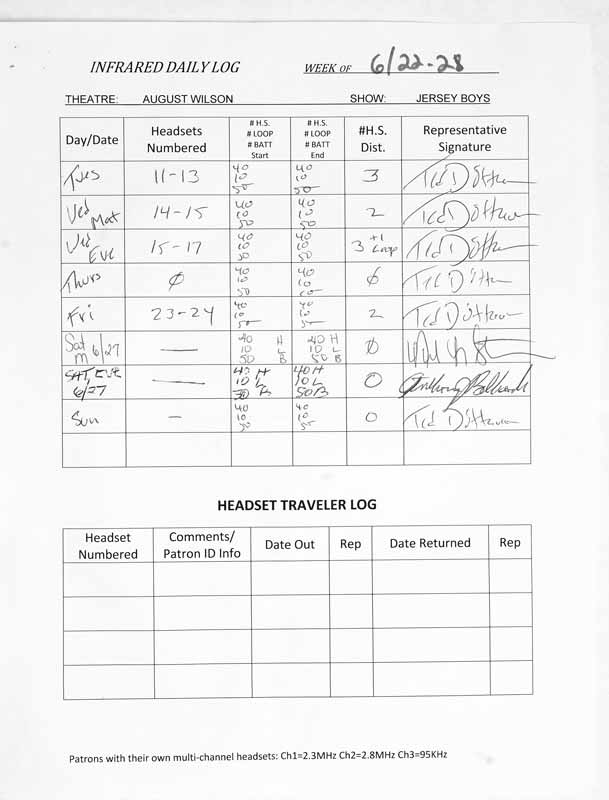 INFRARED DAILY LOG WEEK OF 6/22-28
THEATRE: AUGUST WILSON SHOW: JERSEY BOYS
Day/Date Headsets Numbered # H.S. # LOOP # BATT Start # H.S. # LOOP # BATT End #H.S. Dist. Representative Signature
Tues 11-13 40 10 50 40 10 50 3 Ted
Wed Mat 14-15 40 10 50 40 10 50 2 Ted
Wed Eve 15-17 40 10 50 40 10 50 3 +1 Loop Ted
Thurs Ø 40 10 50 40 10 50 Ø Ted
Fri 23-24 40 10 50 40 10 50 2 Ted
Sat M 6/27 — 40 H 10 L 50 B 40 H 10 L 50 B Ø
SAT, EVE 6/27 — 40 H 10 L 50 B 40 H 10 L 50 B 0 Anthony
Sun — 40 10 50 40 10 50 0 Ted
HEADSET TRAVELER LOG
Headset Numbered Comments/ Patron ID Info Date Out Rep Date Returned Rep
Patrons with their own multi-channel headsets: Ch1=2.3MHz Ch2=2.8MHz Ch3=95KHz